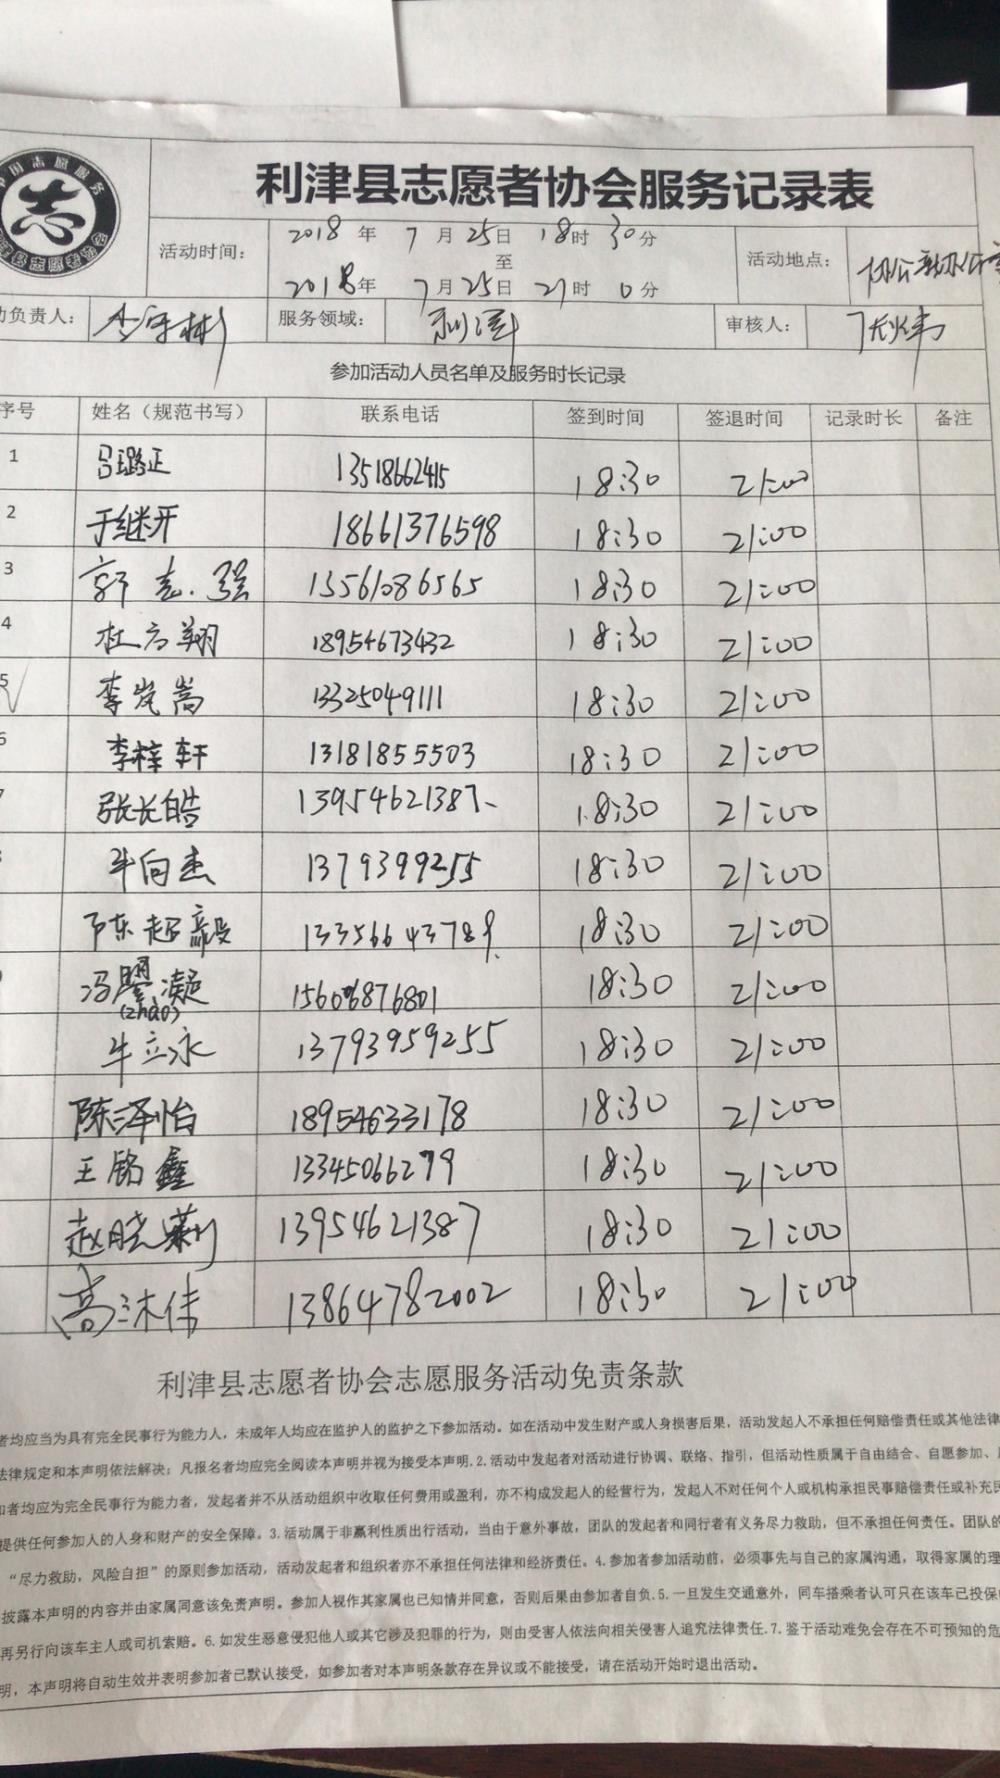 中国志愿服务
志
利津县志愿者协会服务记录表
活动时间: 2018年7月25日18时30分
至
2018年7月25日21时0分
活动地点:
动负责人: 服务领域: 利津 审核人: 张炜
参加活动人员名单及服务时长记录
序号 姓名（规范书写） 联系电话 签到时间 签退时间 记录时长 备注
1 吕璐正 13518662415 18:30 21:00
2 于继开 18661376598 18:30 21:00
3 郭志强 13561086565 18:30 21:00
4 杜方翔 18954673432 18:30 21:00
5 李岚嵩 13325049111 18:30 21:00
6 李梓轩 13181855503 18:30 21:00
7 张长皓 13954621387 18:30 21:00
牛向杰 1379399255 18:30 21:00
陈超毅 13356643789 18:30 21:00
冯曌凝 15606876801 18:30 21:00
(zhào)
牛立永 13793959255 18:30 21:00
陈泽怡 18954633178 18:30 21:00
王铭鑫 13345066279 18:30 21:00
赵晓 13954621387 18:30 21:00
高沐伟 13864782002 18:30 21:00
利津县志愿者协会志愿服务活动免责条款
者均应当为具有完全民事行为能力人，未成年人均应在监护人的监护之下参加活动。如在活动中发生财产或人身损害后果，活动发起人不承担任何赔偿责任或其他法律
法律规定和本声明依法解决；凡报名者均应完全阅读本声明并视为接受本声明.2.活动中发起者对活动进行协调、联络、指引，但活动性质属于自由结合、自愿参加、
者均应为完全民事行为能力者，发起者并不从活动组织中收取任何费用或盈利，亦不构成发起人的经营行为，发起人不对任何个人或机构承担民事赔偿责任或补充民
提供任何参加人的人身和财产的安全保障。3.活动属于非赢利性质出行活动，当由于意外事故，团队的发起者和同行者有义务尽力救助，但不承担任何责任。团队的
“尽力救助，风险自担”的原则参加活动，活动发起者和组织者亦不承担任何法律和经济责任。4.参加者参加活动前，必须事先与自己的家属沟通，取得家属的理
披露本声明的内容并由家属同意该免责声明。参加人视作其家属也已知情并同意，否则后果由参加者自负.5.一旦发生交通意外，同车搭乘者认可只在该车已投保
再另行向该车主人或司机索赔。6.如发生恶意侵犯他人或其它涉及犯罪的行为，则由受害人依法向相关侵害人追究法律责任.7.鉴于活动难免会存在不可预知的危
明，本声明将自动生效并表明参加者已默认接受，如参加者对本声明条款存在异议或不能接受，请在活动开始时退出活动。